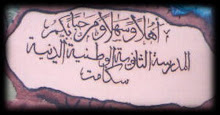 أهلا وسهلا ومرحبا بكم
المدرسة الثانوية الوطنية الدينية
سكامت